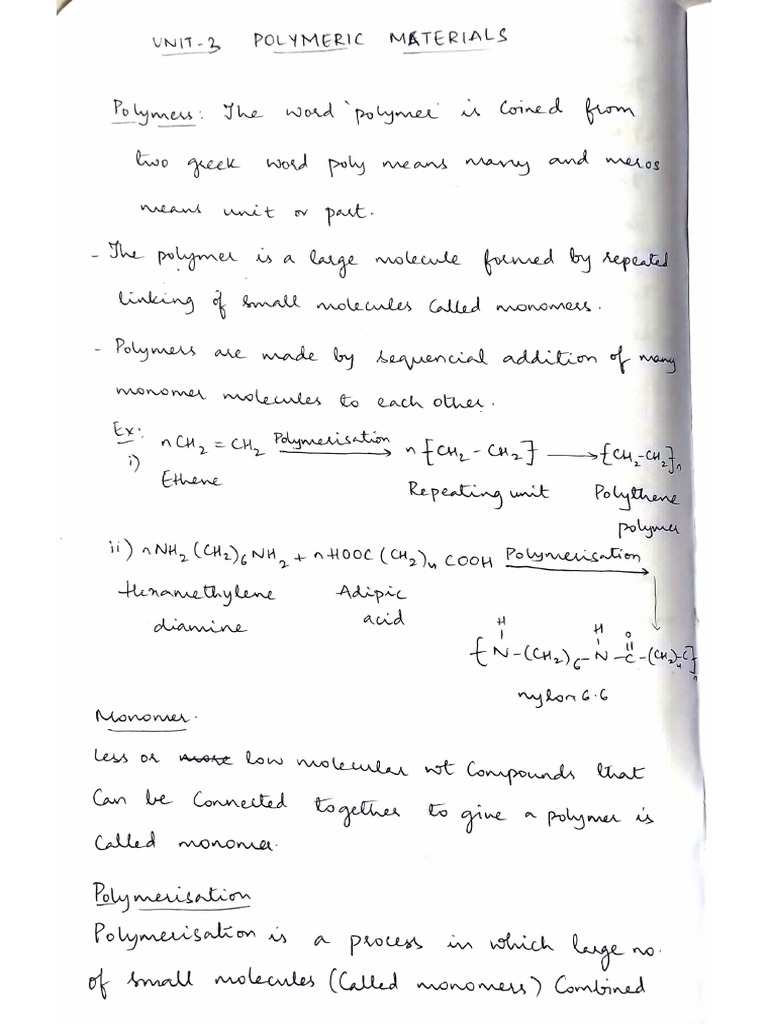 UNIT-3 POLYMERIC MATERIALS
Polymers: The word 'polymer' is coined from
two greek word poly means many and meros
means unit or part.
- The polymer is a large molecule formed by repeated
linking of small molecules called monomers.
- Polymers are made by sequencial addition of many
monomer molecules to each other.
Ex: i) nCH2 = CH2 Polymerisation → n{CH2 - CH2} → {CH2-CH2}n
Ethene Repeating unit Polythene
polymer
ii) nNH2(CH2)6NH2 + nHOOC(CH2)4COOH Polymerisation →
Hexamethylene Adipic
diamine acid
H H O
{N-(CH2)6-N-C-(CH2)4-C}n
nylon 6.6
Monomer.
Less or more low molecular wt compounds that
can be connected together to give a polymer is
called monomer.
Polymerisation
Polymerisation is a process in which large no.
of small molecules (called monomers) combined